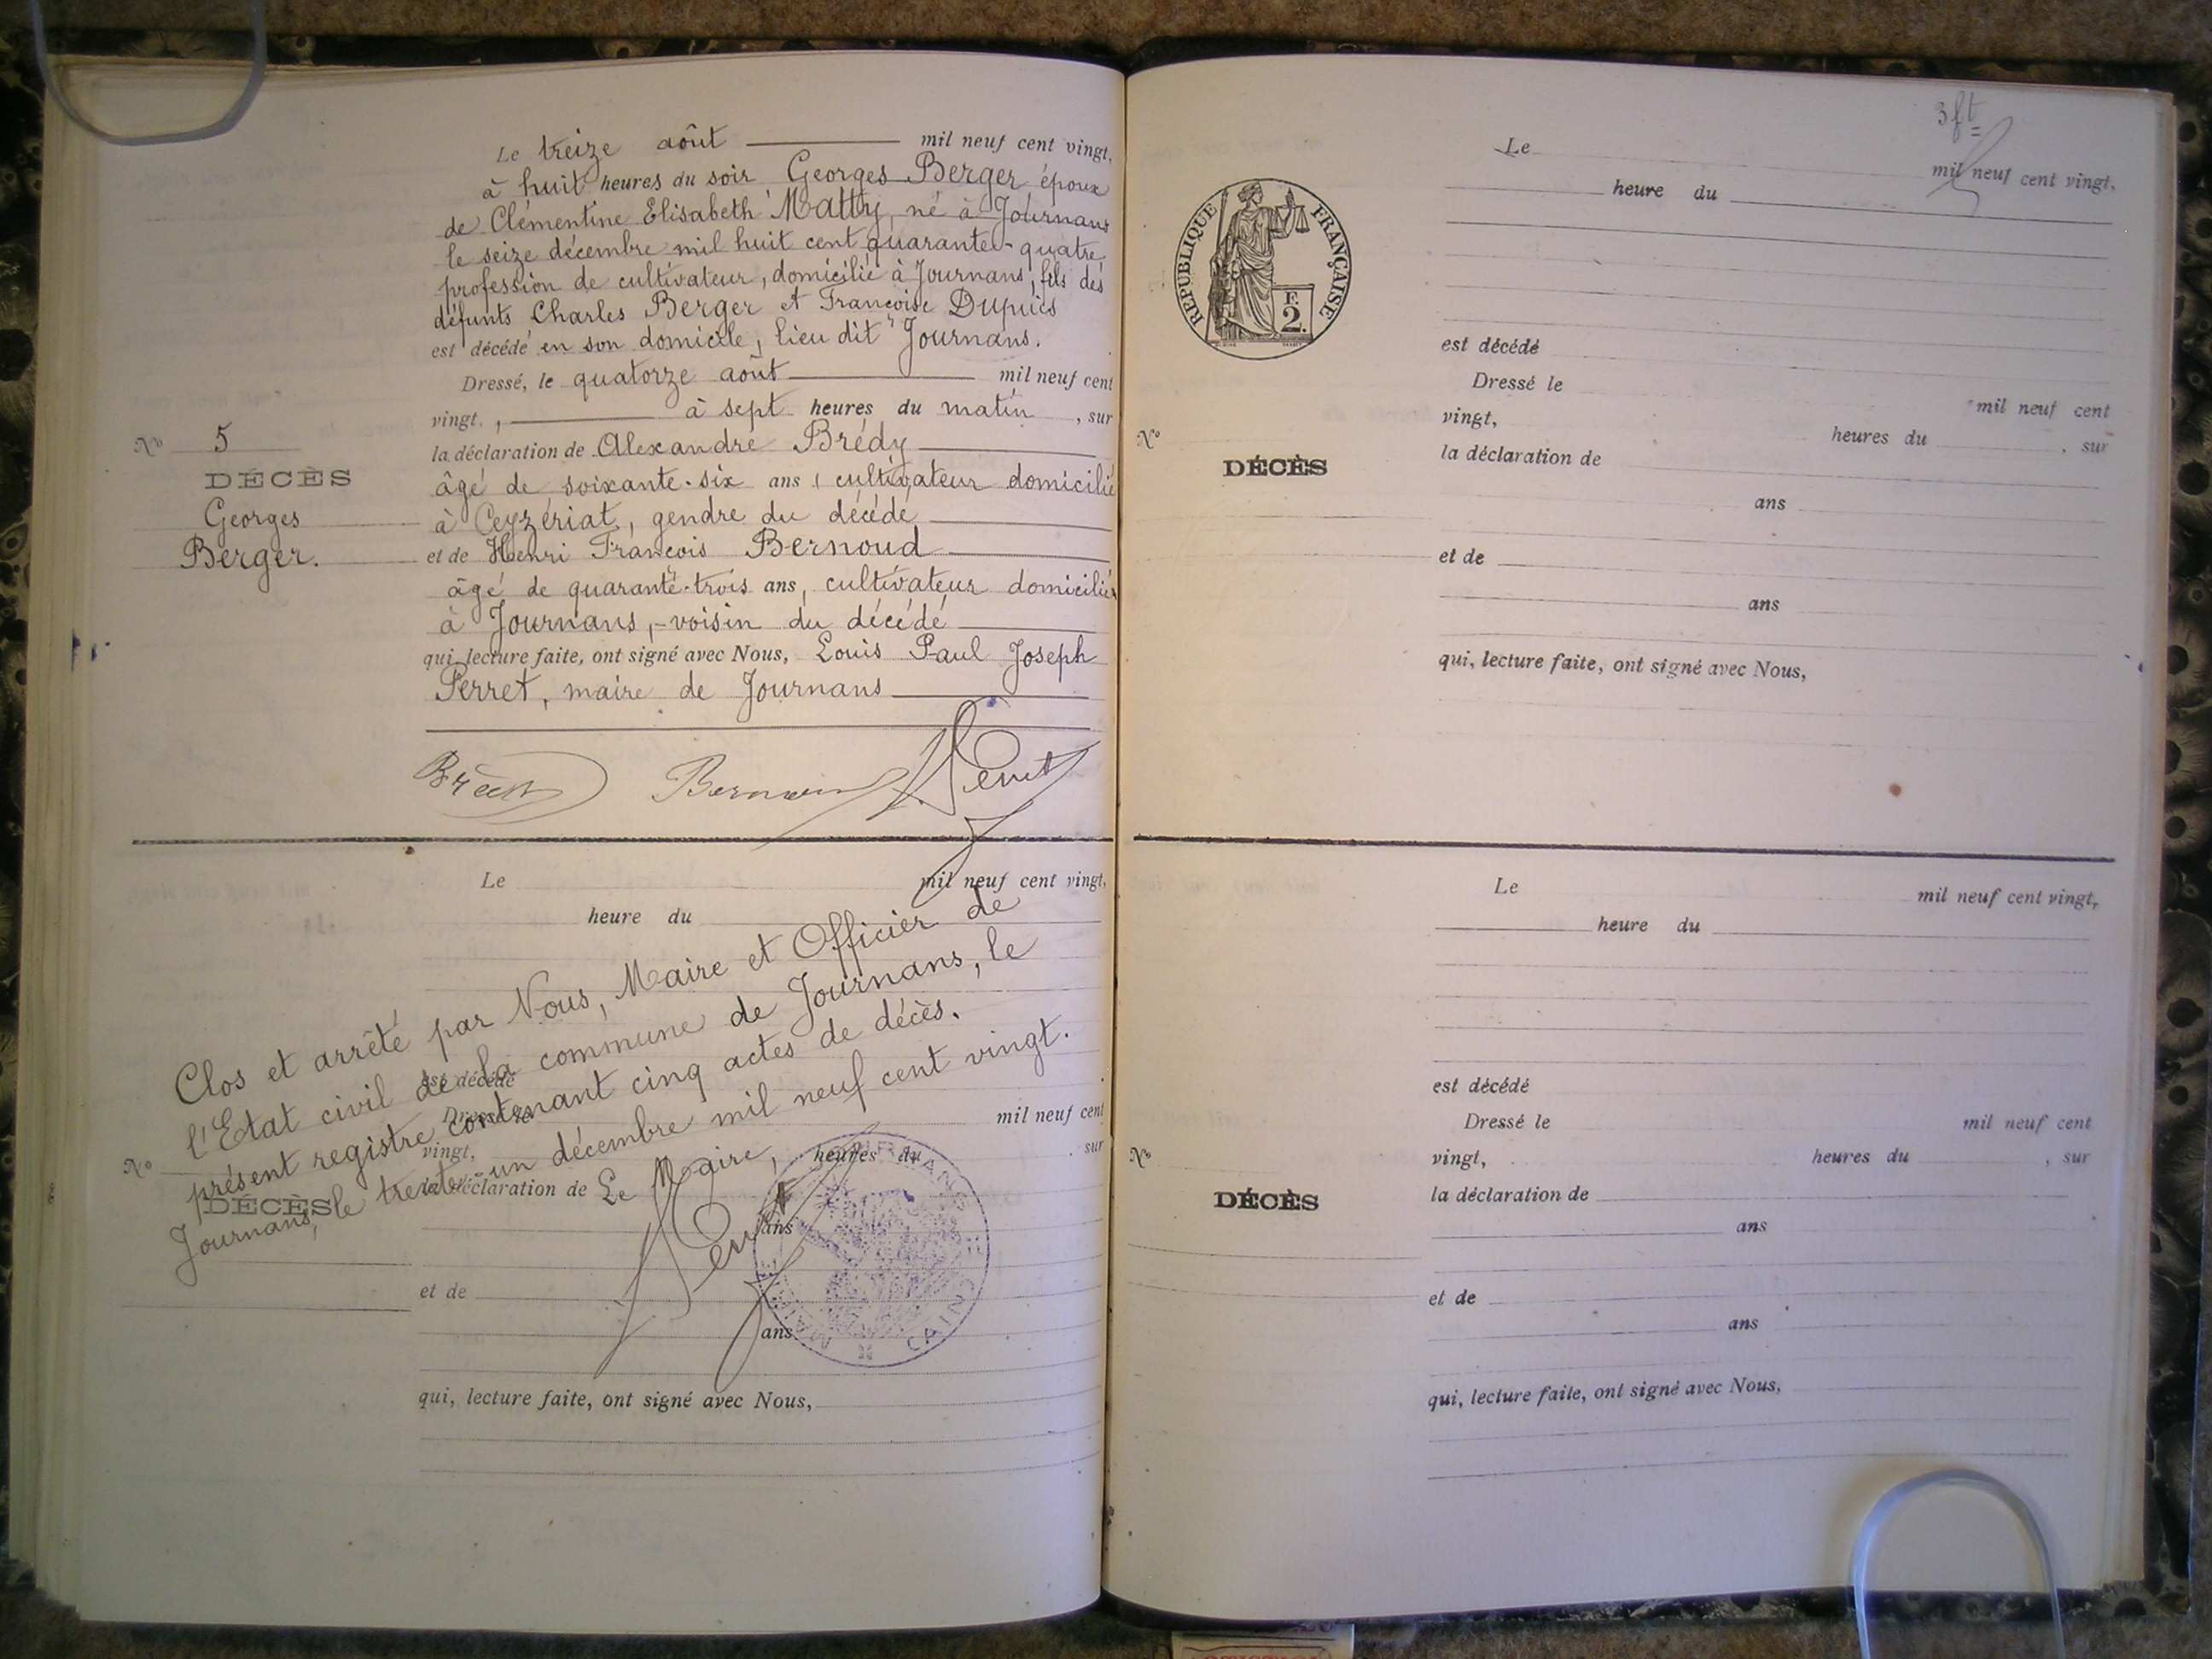 Le treize août mil neuf cent vingt,
à huit heures du soir Georges Berger époux
de Clémentine Elisabeth Matty, né à Journans
le seize décembre mil huit cent quarante-quatre,
profession de cultivateur, domicilié à Journans, fils des
défunts Charles Berger et Françoise Dupuis
est décédé en son domicile, lieu dit Journans.
Dressé, le quatorze août mil neuf cent
vingt, à sept heures du matin, sur
la déclaration de Alexandre Brédy
âgé de soixante-six ans, cultivateur domicilié
à Ceyzériat, gendre du décédé
et de Henri François Bernoud
âgé de quarante-trois ans, cultivateur domicilié
à Journans, voisin du décédé
qui, lecture faite, ont signé avec Nous, Louis Paul Joseph
Perret, maire de Journans
N° 5
DÉCÈS
Georges
Berger.
Perret
Le mil neuf cent vingt,
heure du
Clos et arrêté par Nous, Maire et Officier de
l'Etat civil de la commune de Journans, le
présent registre contenant cinq actes de décès.
Journans, le trente-un décembre mil neuf cent vingt.
Le Maire,
Perret
est décédé
Dressé le mil neuf cent
vingt, heures du , sur
la déclaration de
ans
et de
ans
qui, lecture faite, ont signé avec Nous,
N°
DÉCÈS
3 ft
REPUBLIQUE FRANÇAISE
F.
2.
Le mil neuf cent vingt,
heure du
est décédé
Dressé le mil neuf cent
vingt, heures du , sur
la déclaration de
ans
et de
ans
qui, lecture faite, ont signé avec Nous,
N°
DÉCÈS
Le mil neuf cent vingt,
heure du
est décédé
Dressé le mil neuf cent
vingt, heures du , sur
la déclaration de
ans
et de
ans
qui, lecture faite, ont signé avec Nous,
N°
DÉCÈS